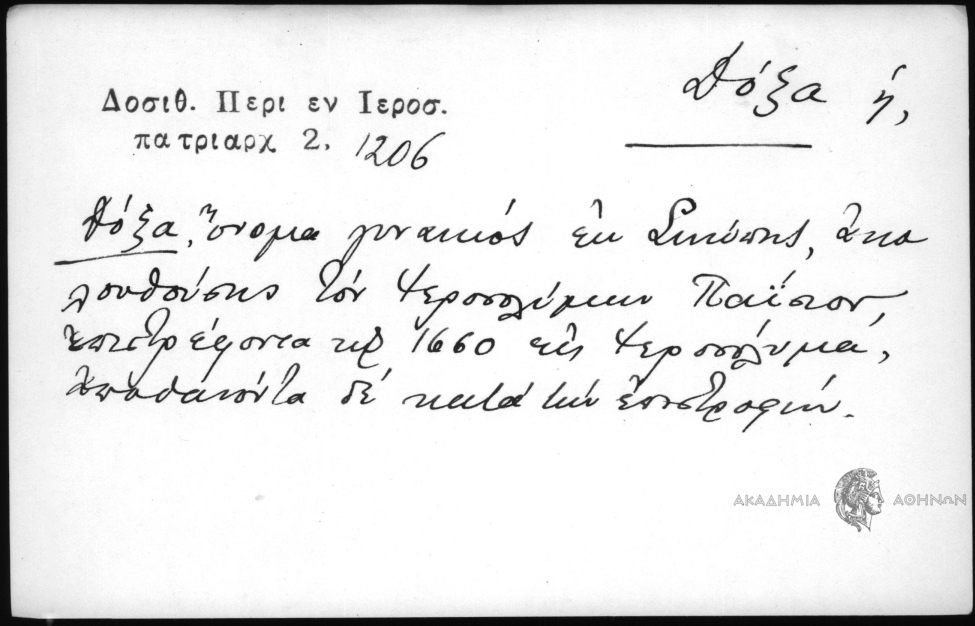 Δόξα ἡ,
Δοσιθ. Περι εν Ιεροσ.
πατριαρχ 2, 1206
Δόξα, ὄνομα γυναικός ἐκ Σινώπης, ἀκο
λουθούσης τόν Ἱεροσολύμων Παΐσιον,
ἐπιστρέφοντα τῷ 1660 εἰς Ἱεροσόλυμα,
ἀποθανόντα δέ κατά τήν ἐπιστροφήν.
ΑΚΑΔΗΜΙΑ ΑΘΗΝΩΝ